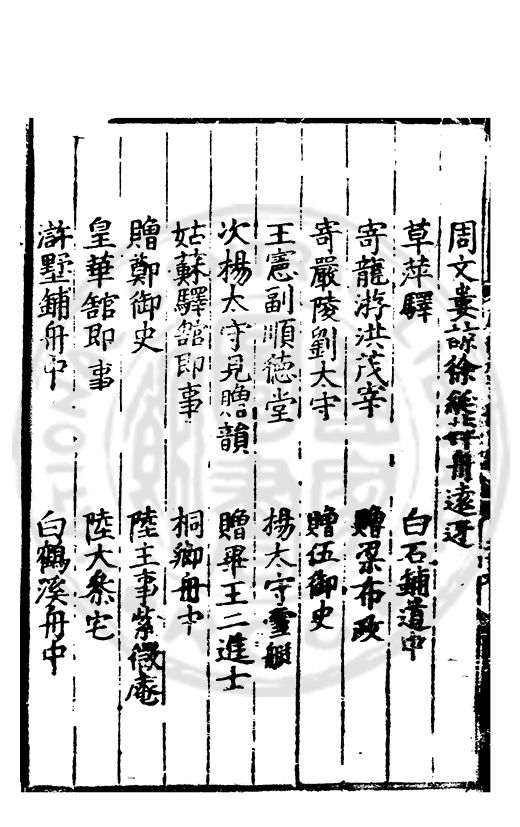 周文婁諒徐紘甘舟遠迓
草萍驛 白石鋪道中
寄龍游洪茂宰 贈梁布政
寄嚴陵劉太守 贈伍御史
王憲副順德堂 楊太守雪艇
次楊太守見贈韻 贈畢王二進士
姑蘇驛舘即事 桐鄉舟中
贈鄭御史 陸主事紫微庵
皇華舘即事 陸大參宅
滸墅鋪舟中 白鶴溪舟中